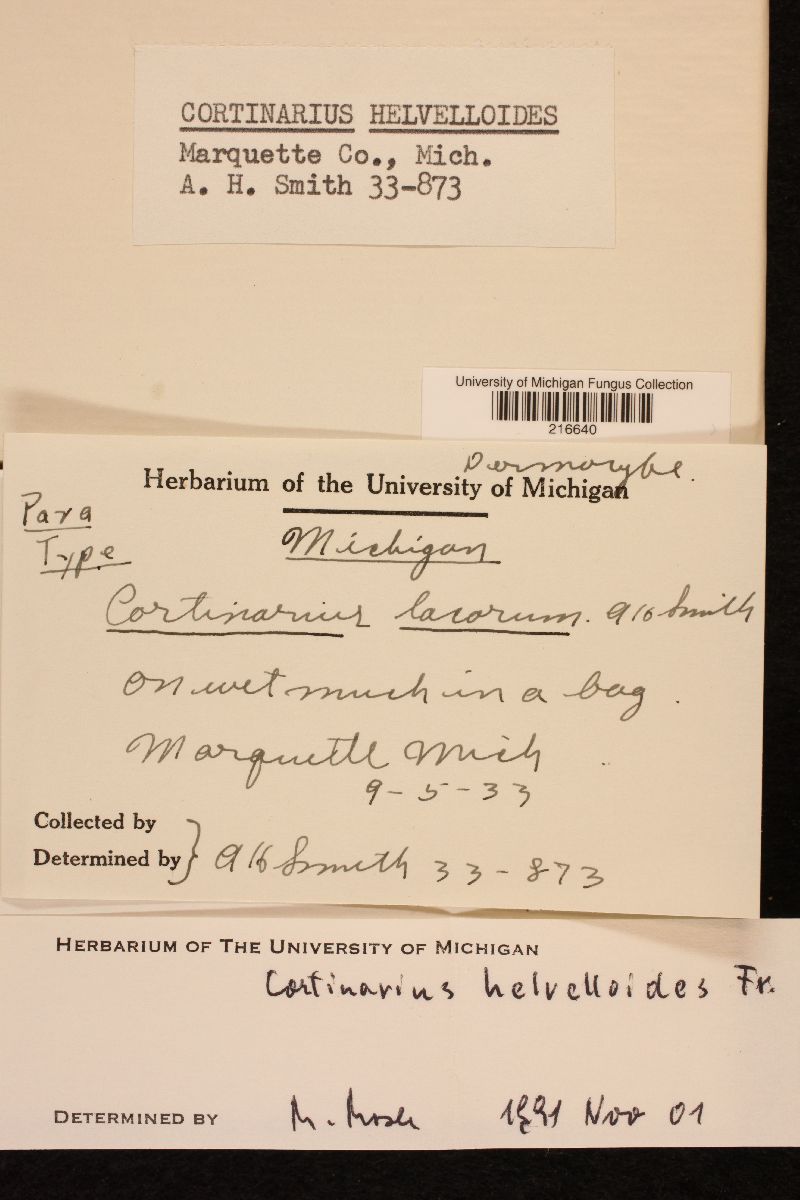 CORTINARIUS HELVELLOIDES
Marquette Co., Mich.
A. H. Smith 33-873
University of Michigan Fungus Collection
216640
Dermocybe.
Herbarium of the University of Michigan
Para
Type
Michigan
Cortinarius lacorum. AHSmith
On wet muck in a bog.
Marquette Mich
9-5-33
Collected by
Determined by } AHSmith 33-873
HERBARIUM OF THE UNIVERSITY OF MICHIGAN
Cortinarius helvelloides Fr.
DETERMINED BY M. Moser 1991 Nov 01